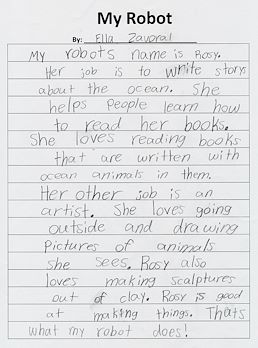 My Robot
By: Ella Zavoral
My robots name is Rosy.
Her job is to write storys
about the ocean. She
helps People learn how
to read her books.
She loves reading books
that are written with
ocean animals in them.
Her other job is an
artist. She loves going
outside and drawing
Pictures of animals
she sees. Rosy also
loves making scalptures
out of clay. Rosy is good
at making things. Thats
what my robot does!